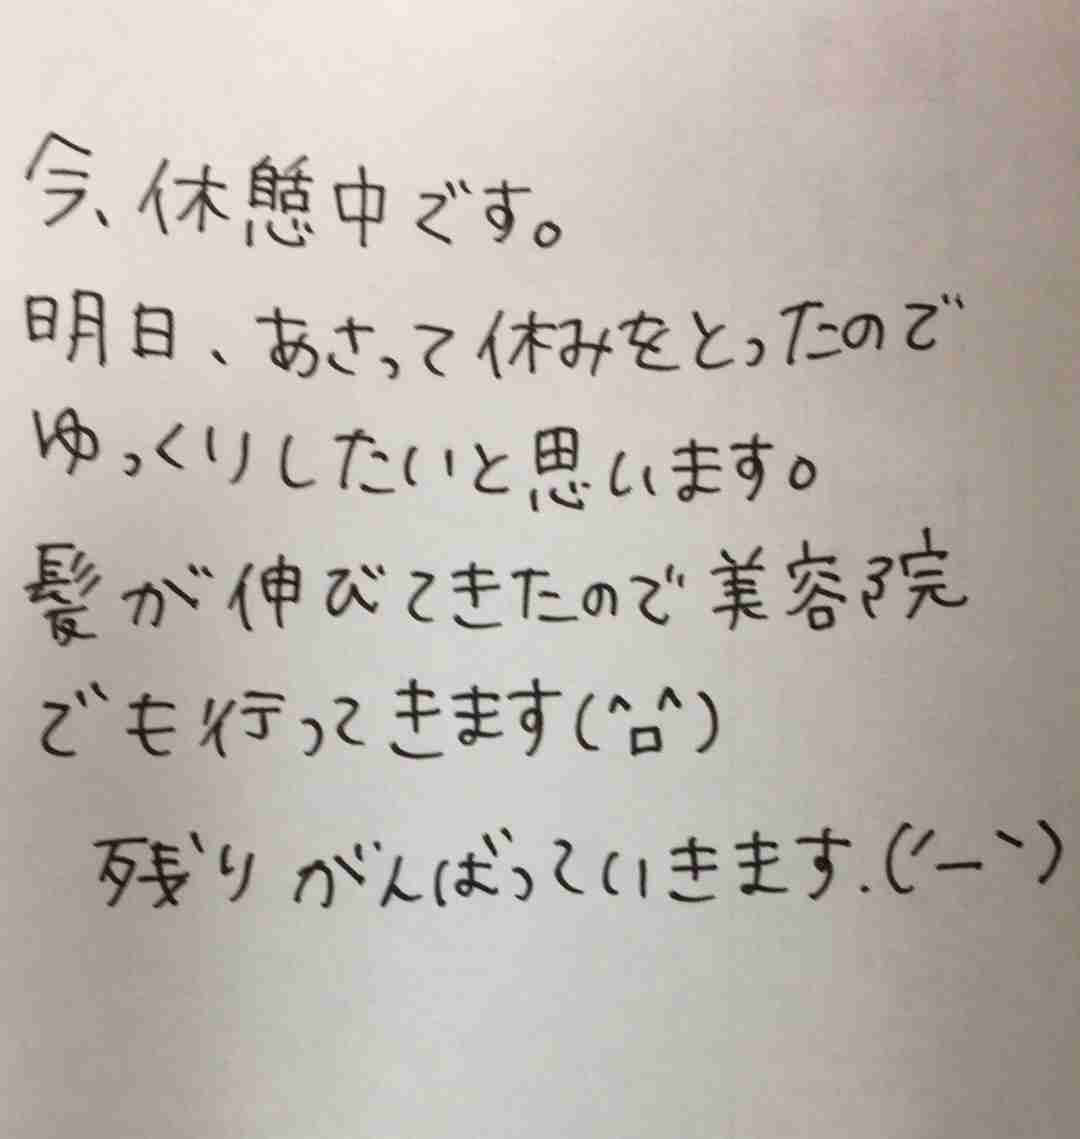 今、休憩中です。
明日、あさって休みをとったので
ゆっくりしたいと思います。
髪が伸びてきたので美容院
でも行ってきます(^ロ^)
残りがんばっていきます.(´ー`)